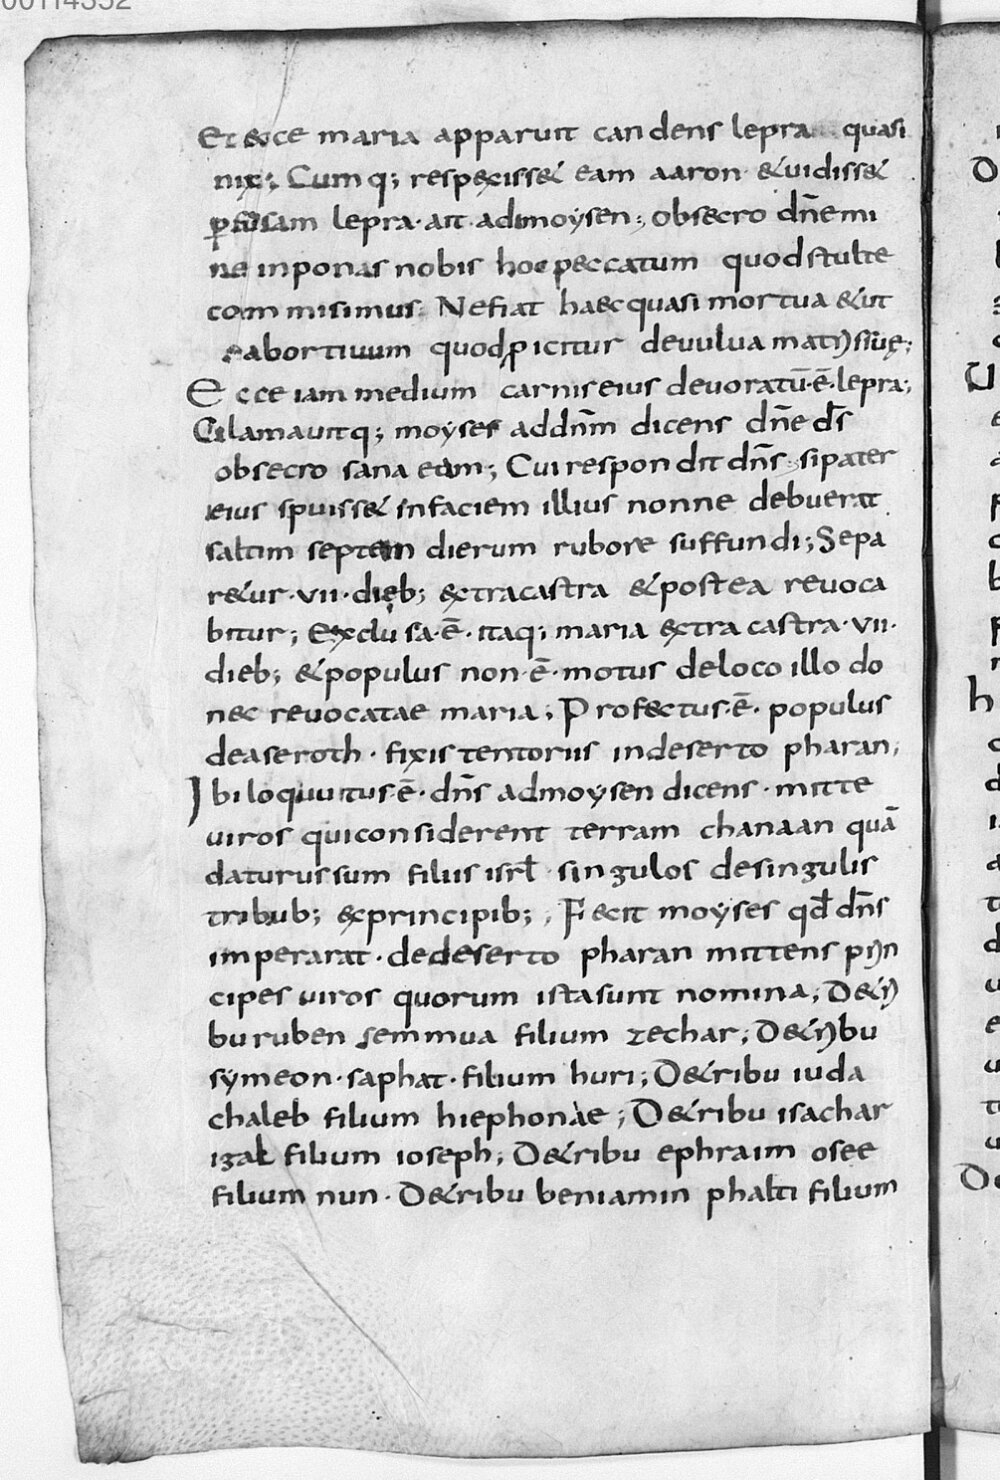 00114352
Et ecce maria apparuit candens lepra quasi
nix; Cumq; respexiss& eam aaron &uidiss&
ꝑfusam lepra· ait admoysen; obsecro dn̄e mi
ne inponas nobis hoc peccatum quod stulte
commisimus· Ne fiat haec quasi mortua &ut
abortiuum quod ꝓicitur deuulua matris suę;
Ecce iam medium carnis eius deuoratū·ē·lepra;
Clamauitq; moyses addn̄m dicens dn̄e ds̄
obsecro sana eam; Cui respondit dn̄s si pater
eius spuiss& in faciem illius nonne debuerat
saltim septem dierum rubore suffundi; Sepa
r&ur·vii·dieb; extra castra & postea reuoca
bitur; Exclusa·ē·itaq; maria extra castra·vii·
dieb; & populus non·ē·motus deloco illo do
nec reuocatae maria; Profectus·ē· populus
deaseroth· fixis tentoriis indeserto pharan;
Ibi loquutus·ē·dn̄s admoysen dicens· mitte
uiros qui considerent terram chanaan quā
daturus sum filiis isrl̄ singulos desingulis
tribub; exprincipib; Fecit moyses qd̄ dn̄s
imperarat· dedeserto pharan mittens prin
cipes uiros quorum ista sunt nomina; De tri
bu ruben semmua filium zechar; De tribu
symeon·saphat·filium huri; De tribu iuda
chaleb filium hiephonae; De tribu isachar
igal filium ioseph; De tribu ephraim osee
filium nun· De tribu beniamin phalti filium